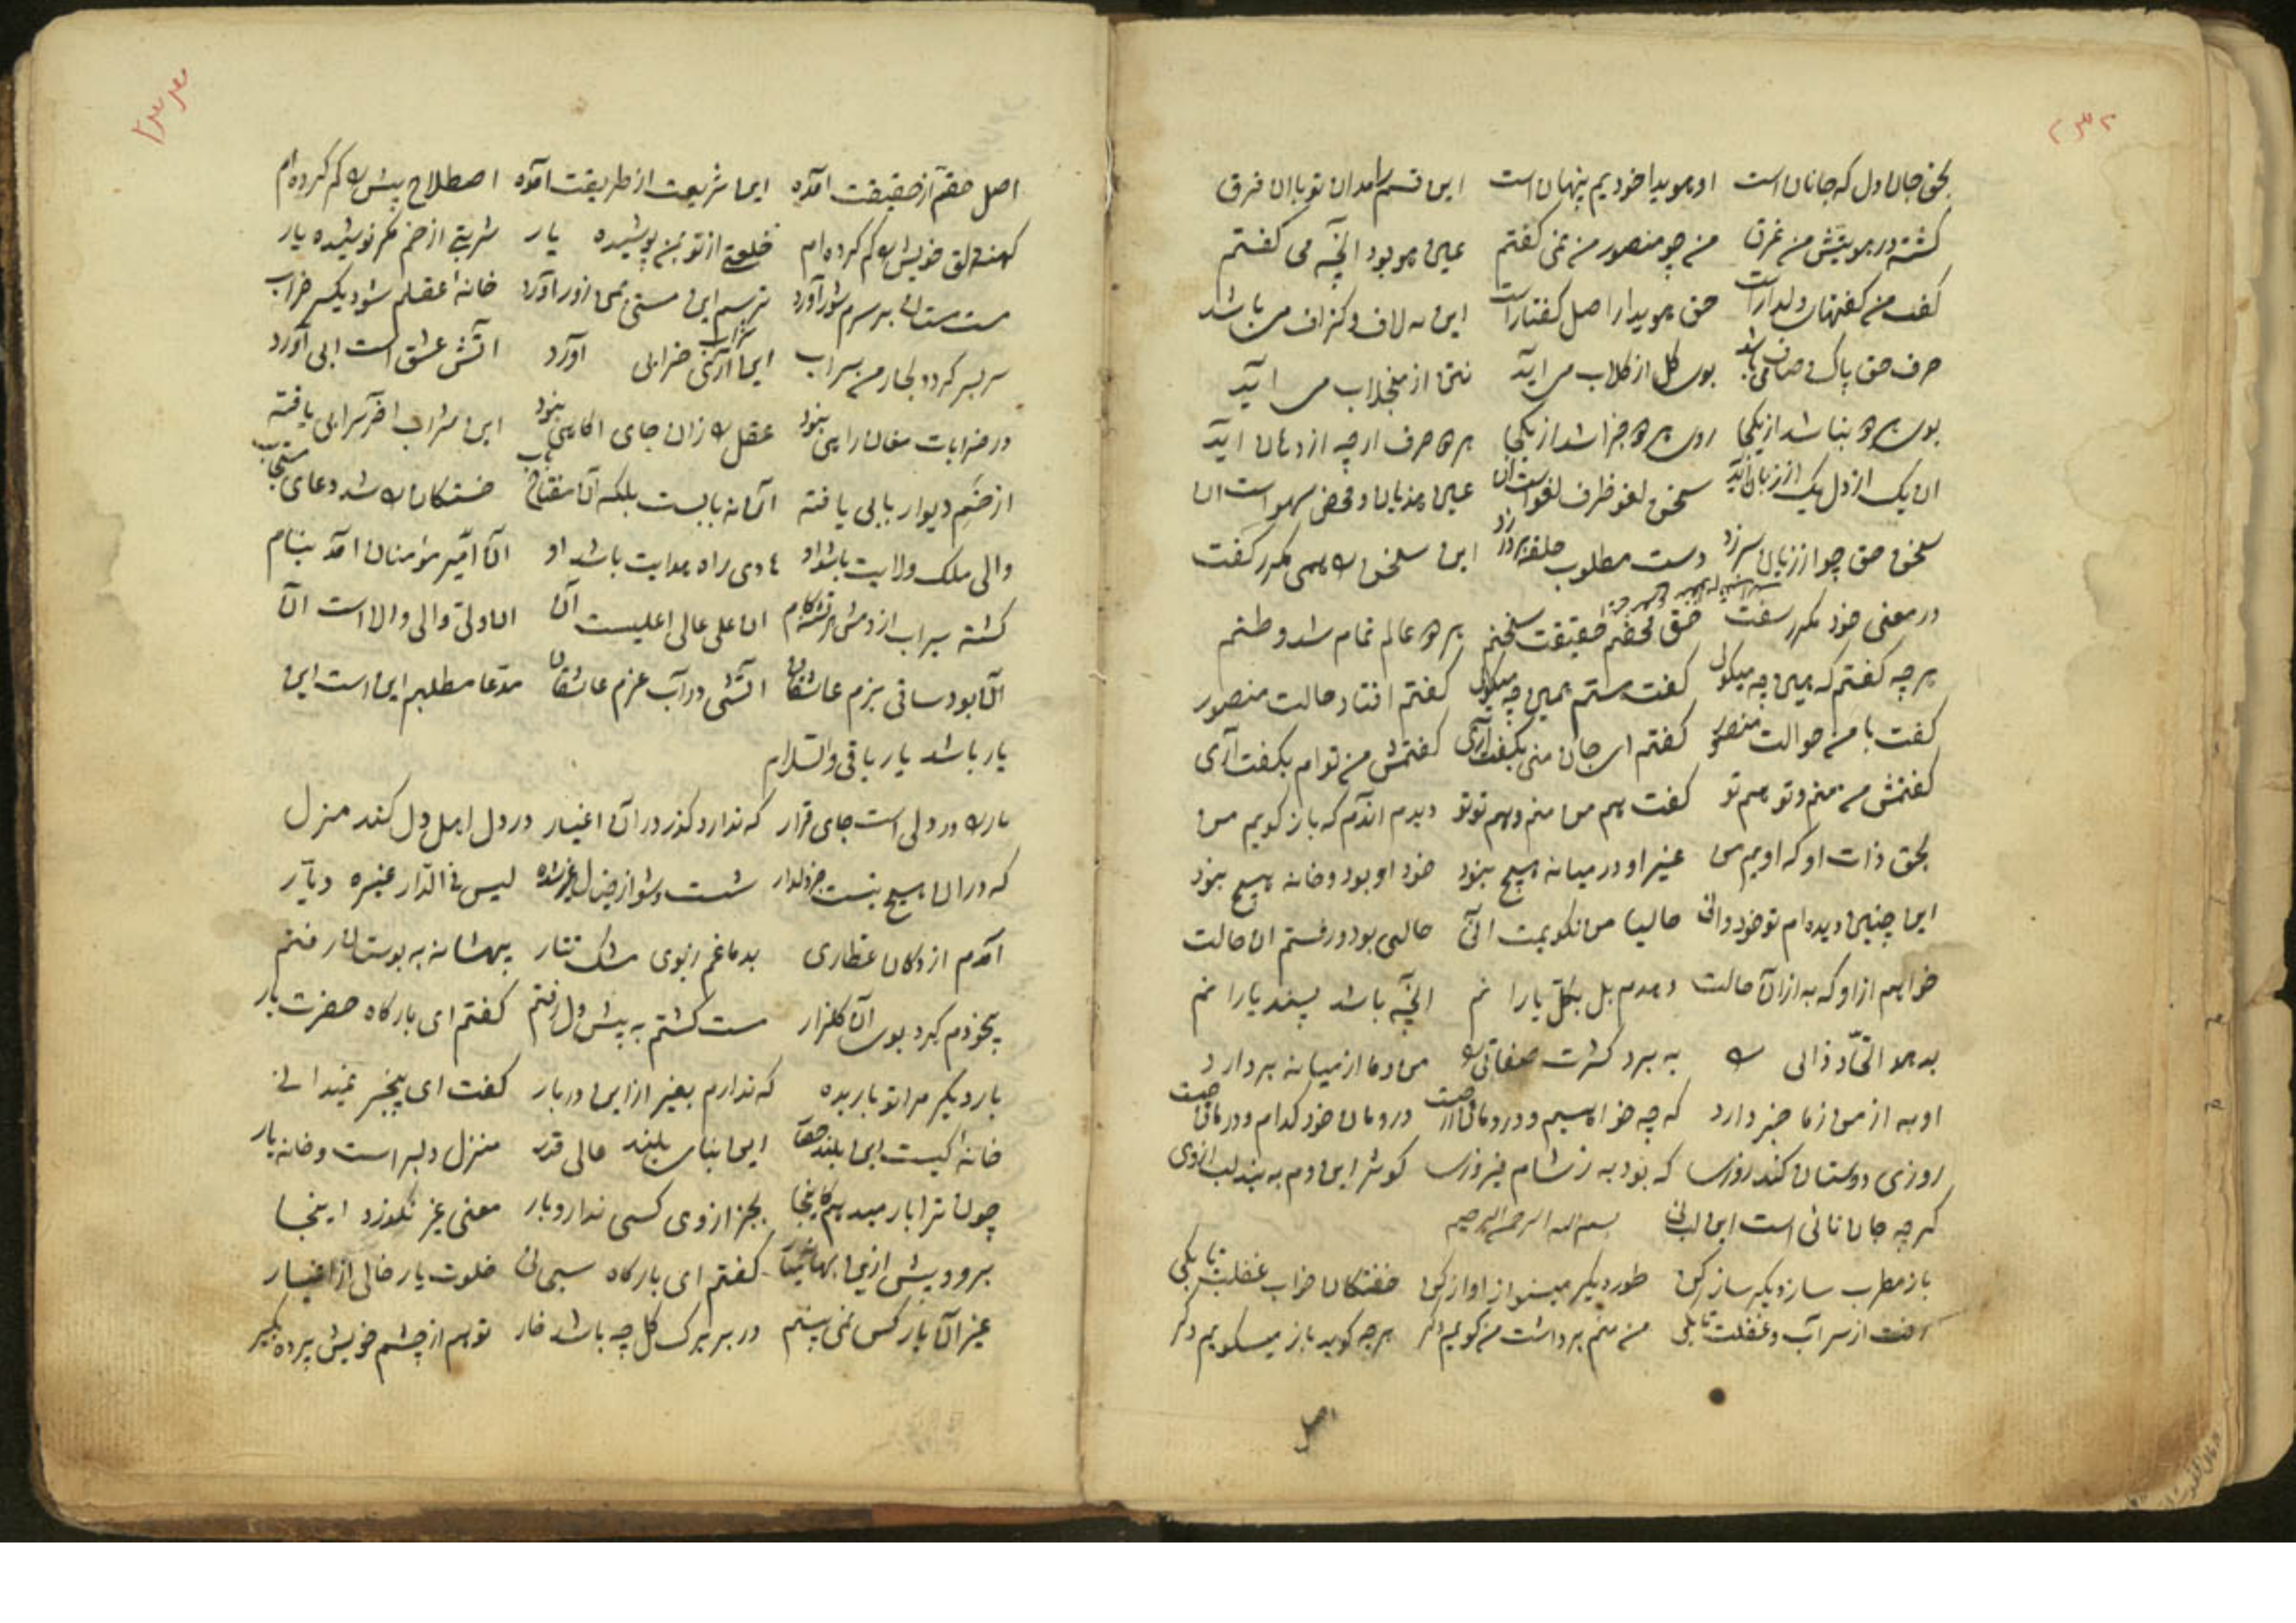 ۲۳۲
بحق جان و دل که جانان است او هویدا خودیم پنهان است این قسم را بدان تو با آن فرق
کشته در هویتش من غرق من چو منصور من نمی کفتم عین او بود انچه می کفتم
کفت من کفتهای دلدار است حق هویدا ر اصل کفتار است این نه لاف و کزاف می باشد
حرف حق پاک و صاف می باشد بوی کل از کلاب می اید نی از منجلاب می اید
بوی هر دو بنا شد از یکجا روی هر دو جزا شد از یکجا هر دو حرف ارچه از دهان اید
ان یک از دل یک از زبان آید سخن لغو ظرف لغو است ان عین هذیان و محض سهو است ان
سخن حق چو از زبان سر زد دست مطلوب حلقه بر در زد این سخن را همی مکرر کفت
در معنی خود مکرر سفت حق محضم حقیقت سخنم هر دو عالم تمام شد وطنم
هر چه کفتم که همین چه میکوئی کفت هستم همین چه میکوئی کفتم افتاد حالت منصور
کفت با من حوالت منصور کفتم ای جان منی بکفت آری کفتمش من توام بکفت آری
کفتمش من منم و تو هم تو کفت هم من منم و هم تو تو دیدم اندم که باز کویم من
بحق ذات او که اویم من غیر او در میانه هیچ نبود خود او بود و خانه هیچ نبود
این چنین دیده ام تو خود دانی حالیا من نکویمت انی حالتی بود و رفتم ان حالت
خواهم از او که به از آن حالت دهدم بل بکلی یارا نم انچه باشد پسند یارا نم
بدهد اتحاد ذاتی را به برد کثرت صفاتی را من و ما از میانه بردارد
او به از من ز ما خبر دارد که چه خواهیم و درد ما از چیست درد مان خود کدام و درمان چیست
روزی دوستان کند روزی که بود به ز شام فیروزی کوثر این دم به بند لب از وی
کرچه جان نائی است این لب نی بسم الله الرحمن الرحیم
باز مطرب ساز دیکر ساز کن طور دیکر مینواز اواز کن خفتکان خواب غفلت تا بکی
رفت از سر آب و غفلت تا بکی من منم برداشت من کویم دکر هرچه کوید باز میکویم دکر
اصل
۲۳۳
اصل حقم از حقیقت آمده این شریعت از طریقت آمده اصطلاح پیش را کم کرده ام
کهنه دلق خویش را کم کرده ام خلعتی از تو بمن پوشیده یار شربتی از خم مکر نوشیده یار
مست مستان بر سرم شور آورد ترسم این مستی بمن زور آورد خانه عقلم شود یکسر خراب
سر بسر کردد بخار من سراب این شراب آری خرابی آورد آتش عشق است ابی آورد
در خرابات مغان راهی نبود عقل را زان جای اکاهی نبود این شراب اخر سرابی یافته
از خم دیوار بابی یافته آن نه بابست بلکه آن مفتاح باب خستکان را شد دعای مستجاب
والی ملک ولایت باشد او هادی راه هدایت باشد او آن امیر مؤمنان آمد بنام
کشته سیراب از دمش هر تشنه کام ان علی عالی اعلیست آن ان ولی والی والا است ان
آن بود ساقی بزم عاشقان اتشی در آب عزم عاشقان مدعا مطلبم این است این
یار باشد یار باقی والسلام
یار را در دلی است جای قرار که ندارد کذر در آن اغیار در دل اهل دل کند منزل
که در ان هیچ نیست جز دلدار شست و شو از ضیزل غیر شده لیس فی الدار غیره دیار
آمدم از دکان عطاری بدماغم ز بوی مشک تتار بیهشانه به بوستان رفتم
بیخودم کرد بوی آن کلزار مست کشتم به پیش دل رفتم کفتم ای بارکاه حضرت یار
بار دیکر مرا تو بار بده که ندارم بغیر از این دربار کفت ای بیخبر نمیدانی
خانه کیست این بلند حصار این بنای بلند عالی قدر منزل دلبر است و خانه یار
چون ترا بار میدهم کاینجا بجز از وی کسی ندارد بار معنی غیر نکذرد اینجا
برو و بیش ازین بهانه میار کفتم ای بارکاه سبحانی خلوت یار خالی از اغیار
غیر آن یار کس نمی بینم در بر برک کل چه باشد خار تو هم از چشم خویش پرده بکیر